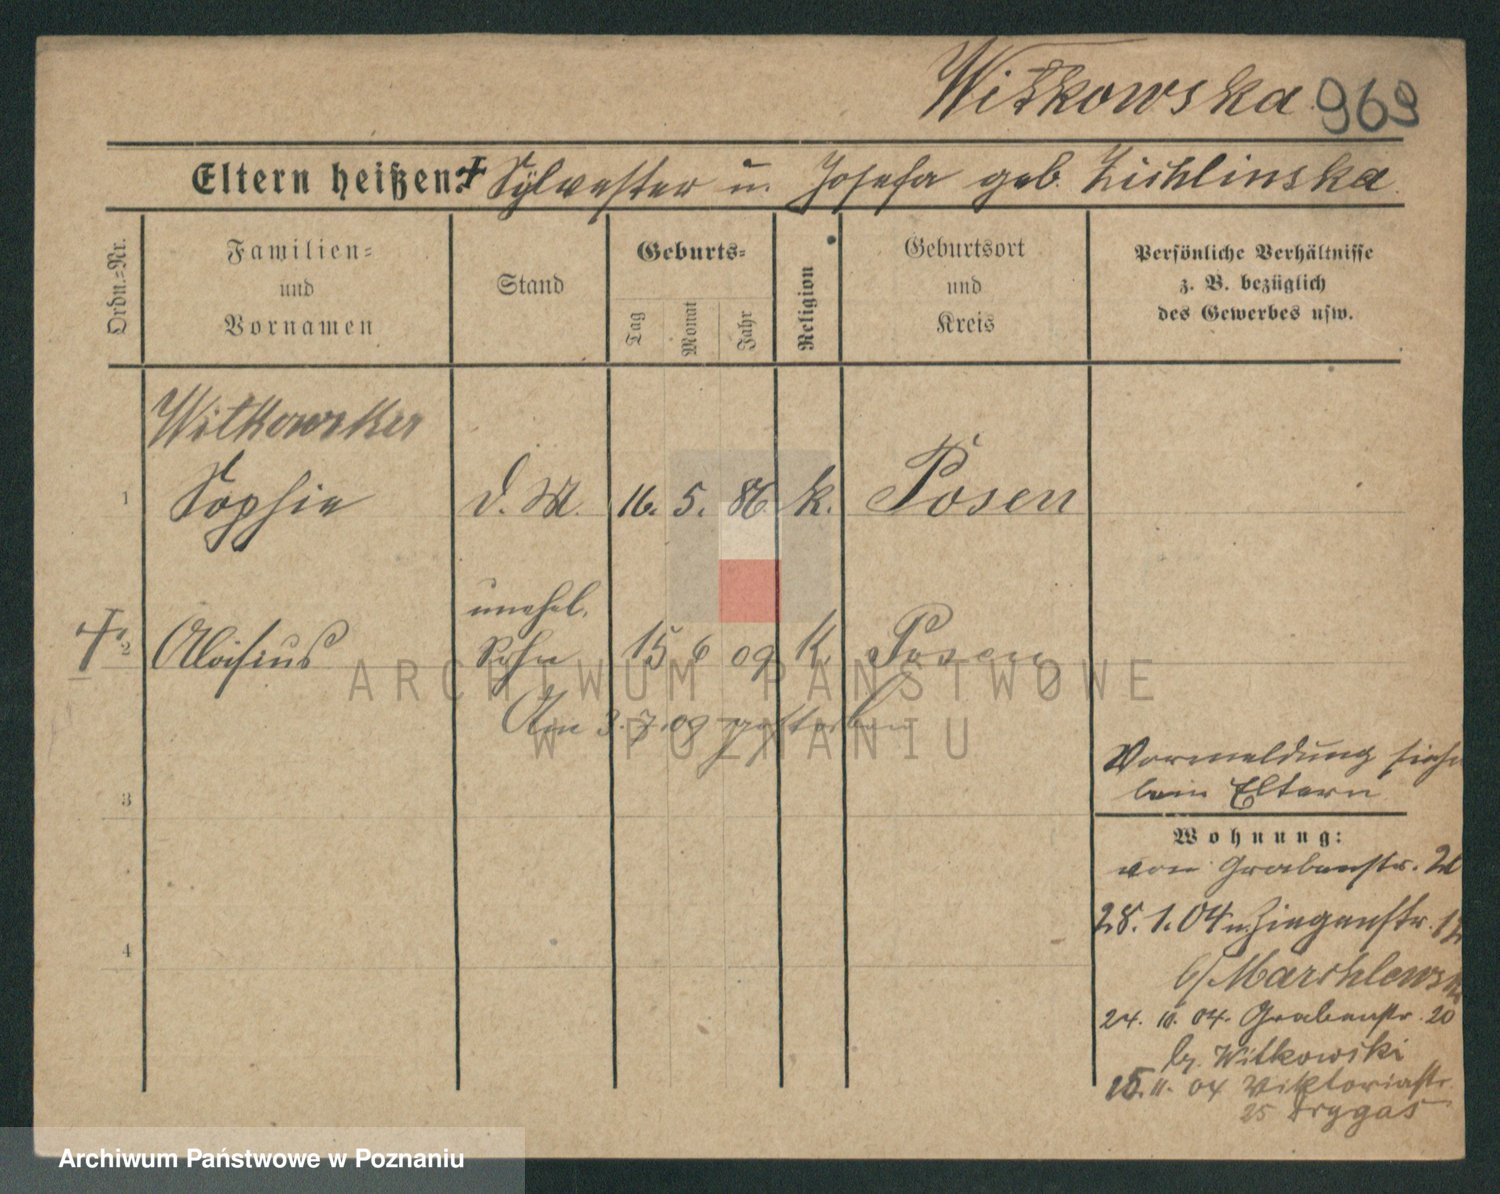 Witkowska 969
Eltern heißen: † Sylvester u. Josefa geb. Zichlinska.
Ordn.=Nr.
Familien=
und
Vornamen
Stand
Geburts=
Tag
Monat
Jahr
Religion
Geburtsort
und
Kreis
Persönliche Verhältnisse
z. B. bezüglich
des Gewerbes usw.
Witkowska
1 Sophie d. M. 16. 5. 86 k. Posen
unehel.
† 2 Aloisius Sohn 15 6 09 k. Posen
Am 3. 7. 09 gestorben
3
4
Vormeldung siehe
beim Eltern
Wohnung:
von Grabenstr. 20
28. 1. 04 n. Ziegenstr. 12
b/ Marchlewsk
24. 10. 04. Grabenstr. 20
b. Witkowski
25. 11. 04 Viktoriastr.
25 Drygas
ARCHIWUM PAŃSTWOWE
W POZNANIU
Archiwum Państwowe w Poznaniu